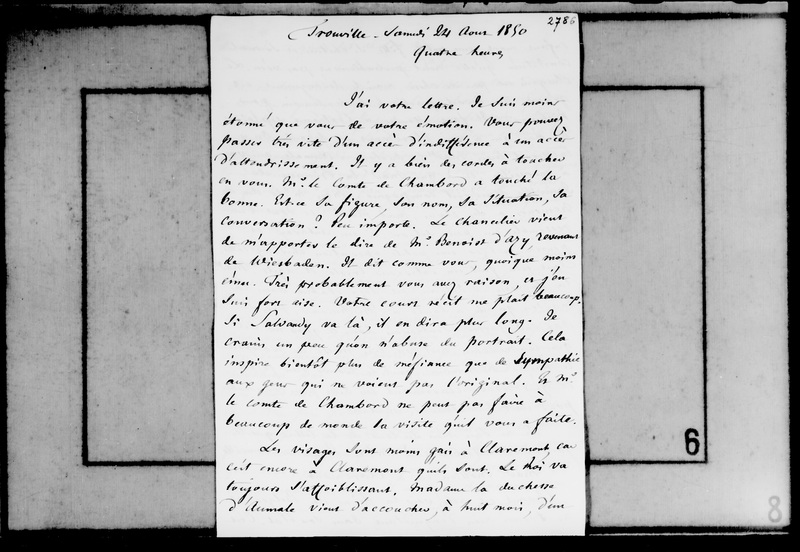 2786
Trouville - Samedi 24 Août 1850
Quatre heures
J'ai votre lettre. Je suis moins
étonné que vous de votre émotion. Vous pouvez
passer très vite d'un accès d'indifférence à un accès
d'attendrissement. Il y a bien des cordes à toucher
en vous. Mr. le Comte de Chambord a touché la
bonne. Est-ce sa figure, son nom, sa situation, sa
conversation ? Peu importe. Le Chancelier vient
de m'apporter le dire de Mr. Benoist d'azy, revenant
de Wiesbaden. Il dit comme vous, quoique moins
ému. Très probablement vous avez raison, et j'en
suis fort aise. Votre court récit me plait beaucoup.
Si Salvandy va là, il en dira plus long. Je
crains un peu qu'on n'abuse du portrait. Cela
inspire bientôt plus de méfiance que de sympathie
aux gens qui ne voient pas l'original. Et Mr.
le comte de Chambord ne peut pas faire à
beaucoup de monde la visite qu'il vous a faite.
Les visages sont moins gais à Claremont, car
c'est encore à Claremont qu'ils sont. Le Roi va
toujours s'affoiblissant. Madame la duchesse
d'Aumale vient d'accoucher, à huit mois, d'un
6
8